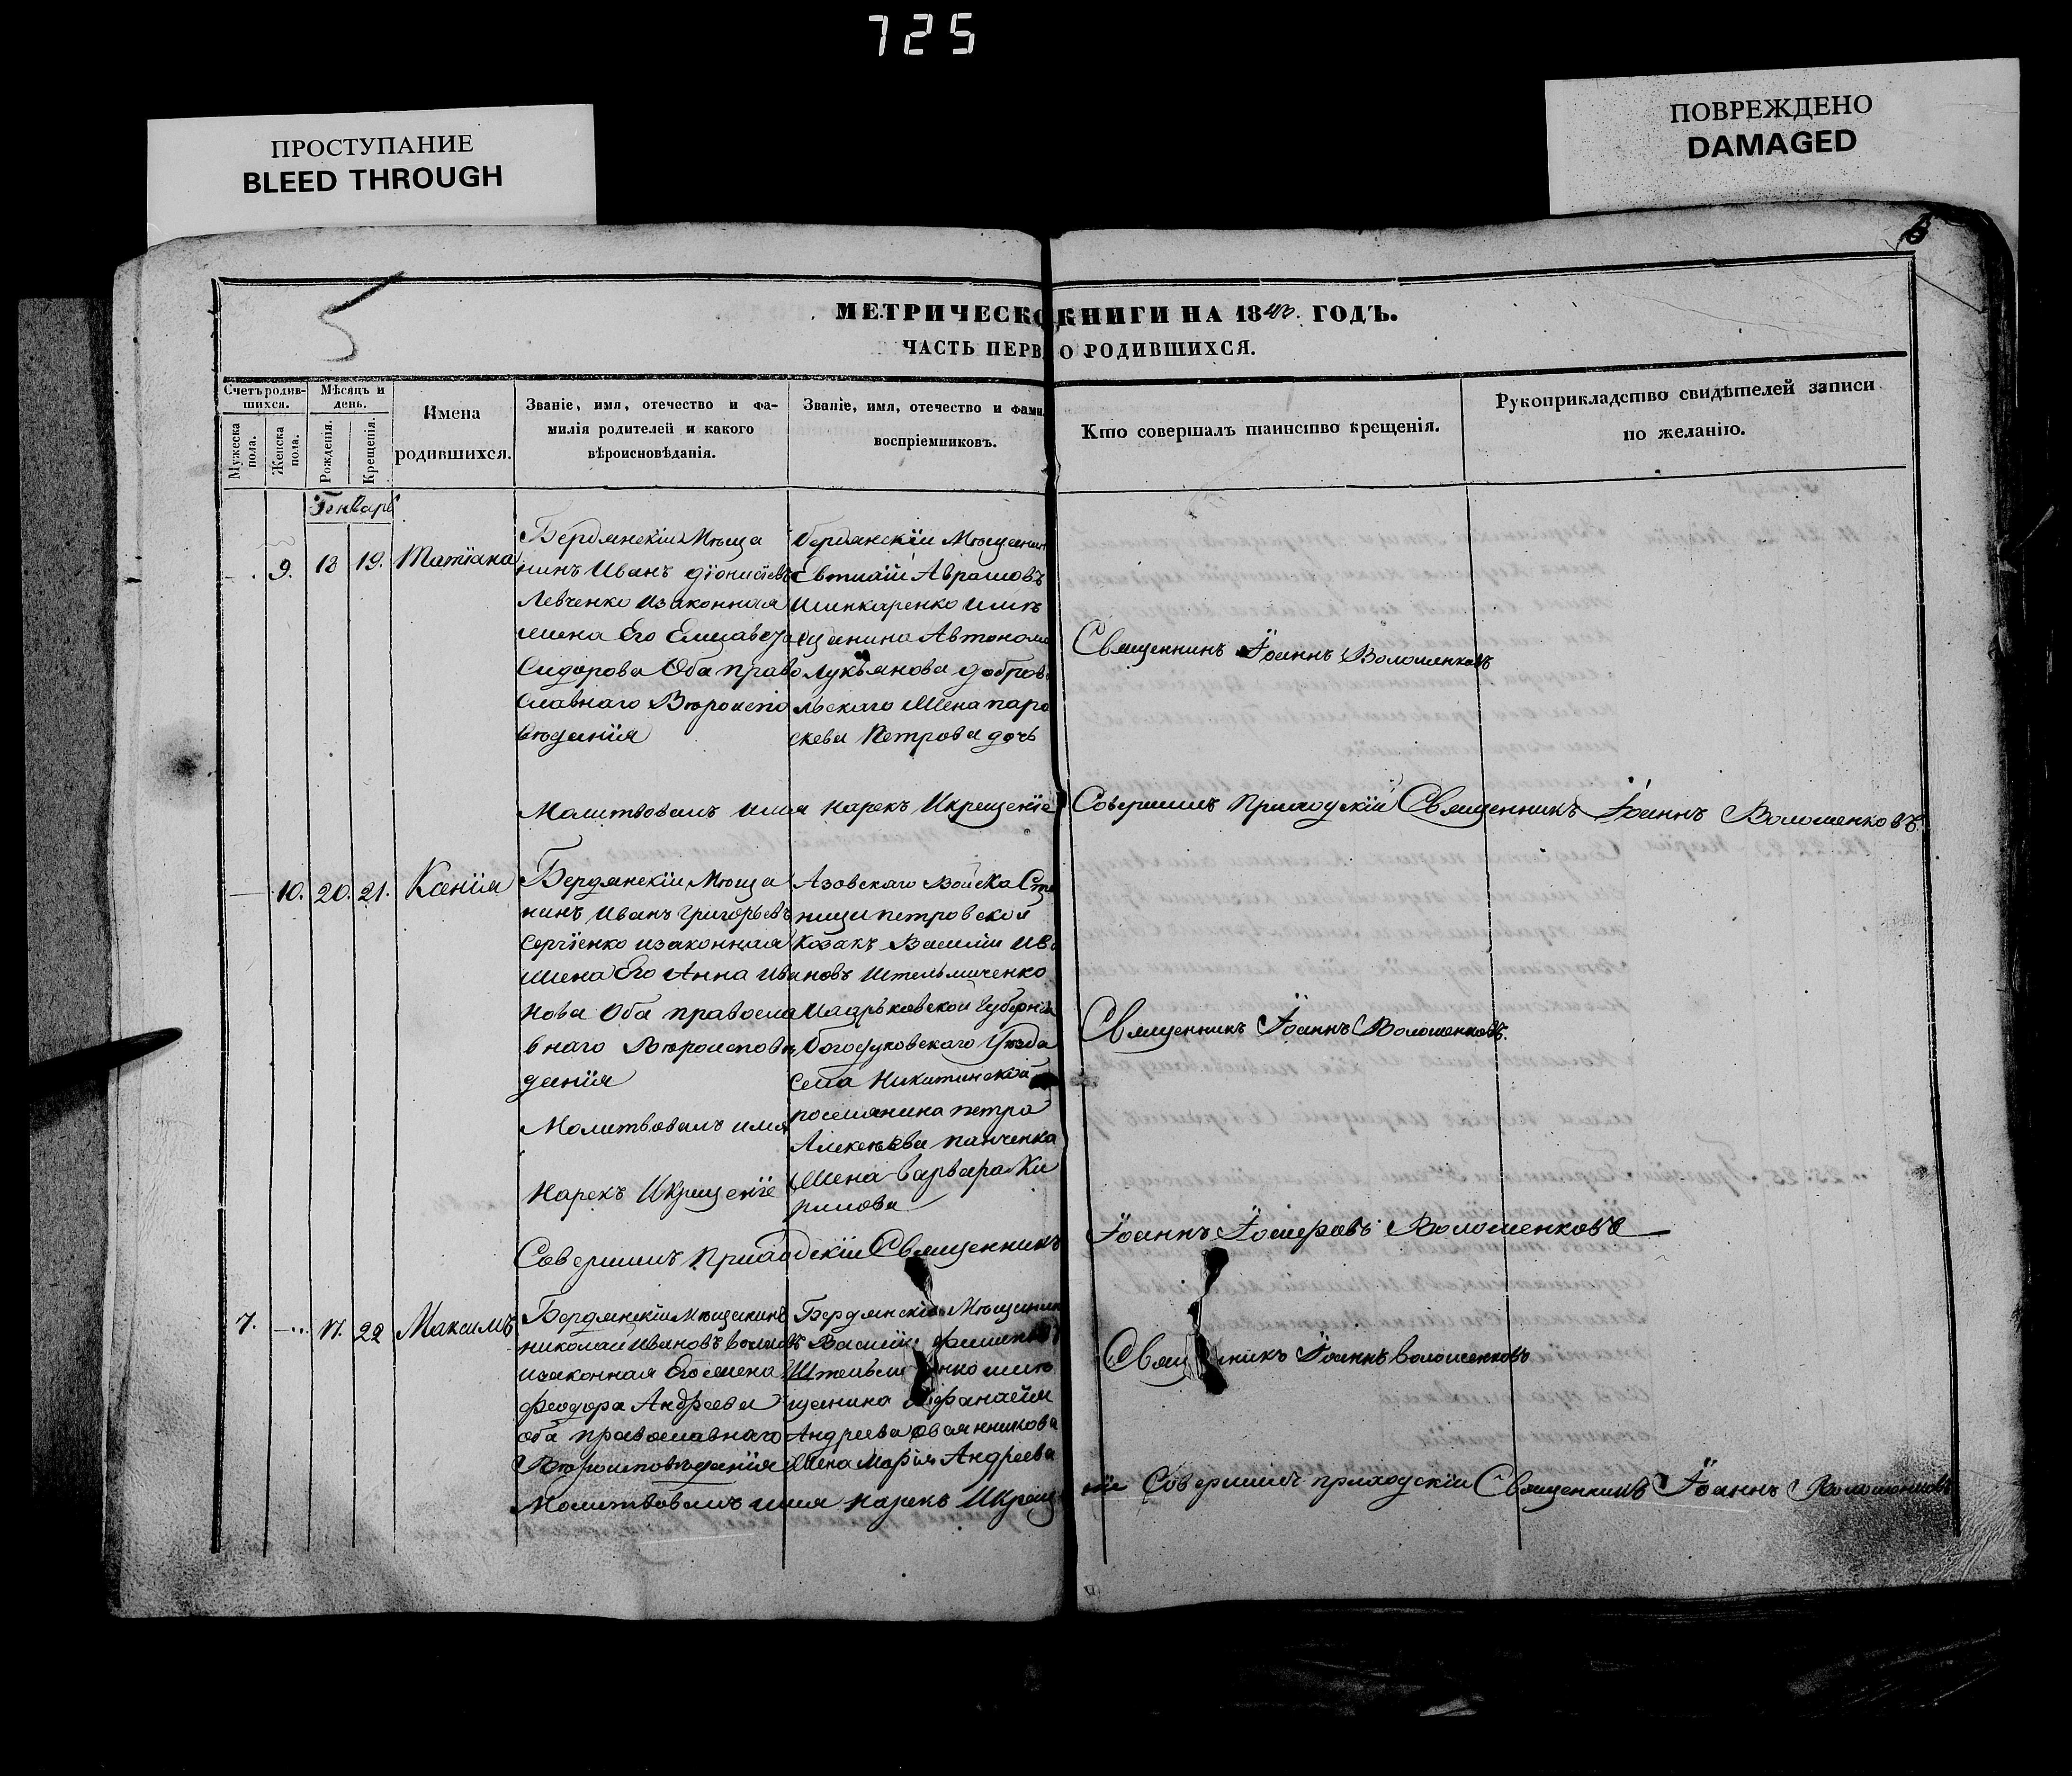 725
ПРОСТУПАНИЕ
BLEED THROUGH
ПОВРЕЖДЕНО
DAMAGED
5
МЕТРИЧЕСКО КНИГИ НА 18 ГОДЪ.
ЧАСТЬ ПЕРВ О РОДИВШИХСЯ.
Счетъ родив-
шихся.
Мужеска
пола.
Женска
пола.
Мѣсяцъ и
день.
Рожденія.
Крещенія.
Имена
родившихся.
Званіе, имя, отечество и фа-
милія родителей и какого
вѣроисповѣданія.
Званіе, имя, отечество и фами
воспріемниковъ.
Кто совершалъ таинство крещенія.
Рукоприкладство свидѣтелей записи
по желанію.
Генварь
9. 18 19. Татіана
Бердянскіи Мѣща
нинъ Иванъ Діонисіевъ
Левченко изаконная
жена Его Елисавета
Сидорова Оба право
славнаго Вѣроиспо
вѣданія
бердянскіи Мѣщанин
Евтихій Аврамовъ
Шинкаренко имѣ
щанина Автонома
Лукьянова добров
льскаго жена пара
скева Петрова дочь
Священникъ Іоаннъ Волошенковъ
Молитвовалъ имя нарекъ Икрещеніе Совершилъ Приходскій Священникъ Іоаннъ Волошенковъ
10. 20. 21. Ксенія
Бердянскіи Мѣща
нинъ Иванъ Григорьевъ
Сергіенко изаконная
жена Его Анна Ива
нова Оба правосла
внаго Вѣроисповѣ
данія
Молитвовалъ имя
Нарекъ Икрещеніе
Совершилъ Приходскіи Священникъ
Азовскаго Войска Ста
ницы петровской
Козакъ Василіи Ив
новъ Штельмаченко
Ихарьковской Губерніи
богодуховскаго Уѣзда
села Никитинской
поселянина петра
Алексѣева панченка
жена варвара Ки
рилова
Священникъ Іоаннъ Волошенковъ.
Іоаннъ Волошенковъ
7. 17. 22 Максимъ
Бердянскіи Мѣщанинъ
николаи Ивановъ
изаконная Его жена
феодора Андреева
оба православнаго
Вѣроисповѣданія
Бердянскіи Мѣщанин
Василіи
имѣ
щанина
Андреева Овсянникова
жена Марія Андреева
Священникъ Іоаннъ волошенковъ
Молитвовалъ имя нарекъ Икрещ ніе Совершилъ приходскіи Священникъ Іоаннъ Волошенковъ